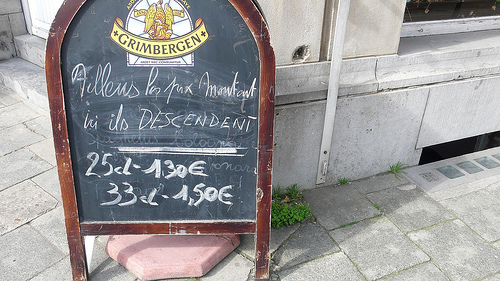 GRIMBERGEN
Ailleurs les prix montent
ici ils DESCENDENT
25cl-1,30€
33cl-1,50€